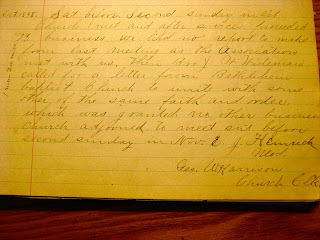 Oct 1895. Sat before second sunday in Oct
Church met and after service proceeded
to business, we had no report to make
from last meeting as the Association
met with us, then Bro J. W. Wideman
called for a letter from Bethlehem
baptist Church to unite with some
other of the same faith and order
which was granted no other business
Church adjourned to meet sat before
second sunday in Nov. E. J. Heinrich
Mod,
Geo. W. Harrison
Church Clk.